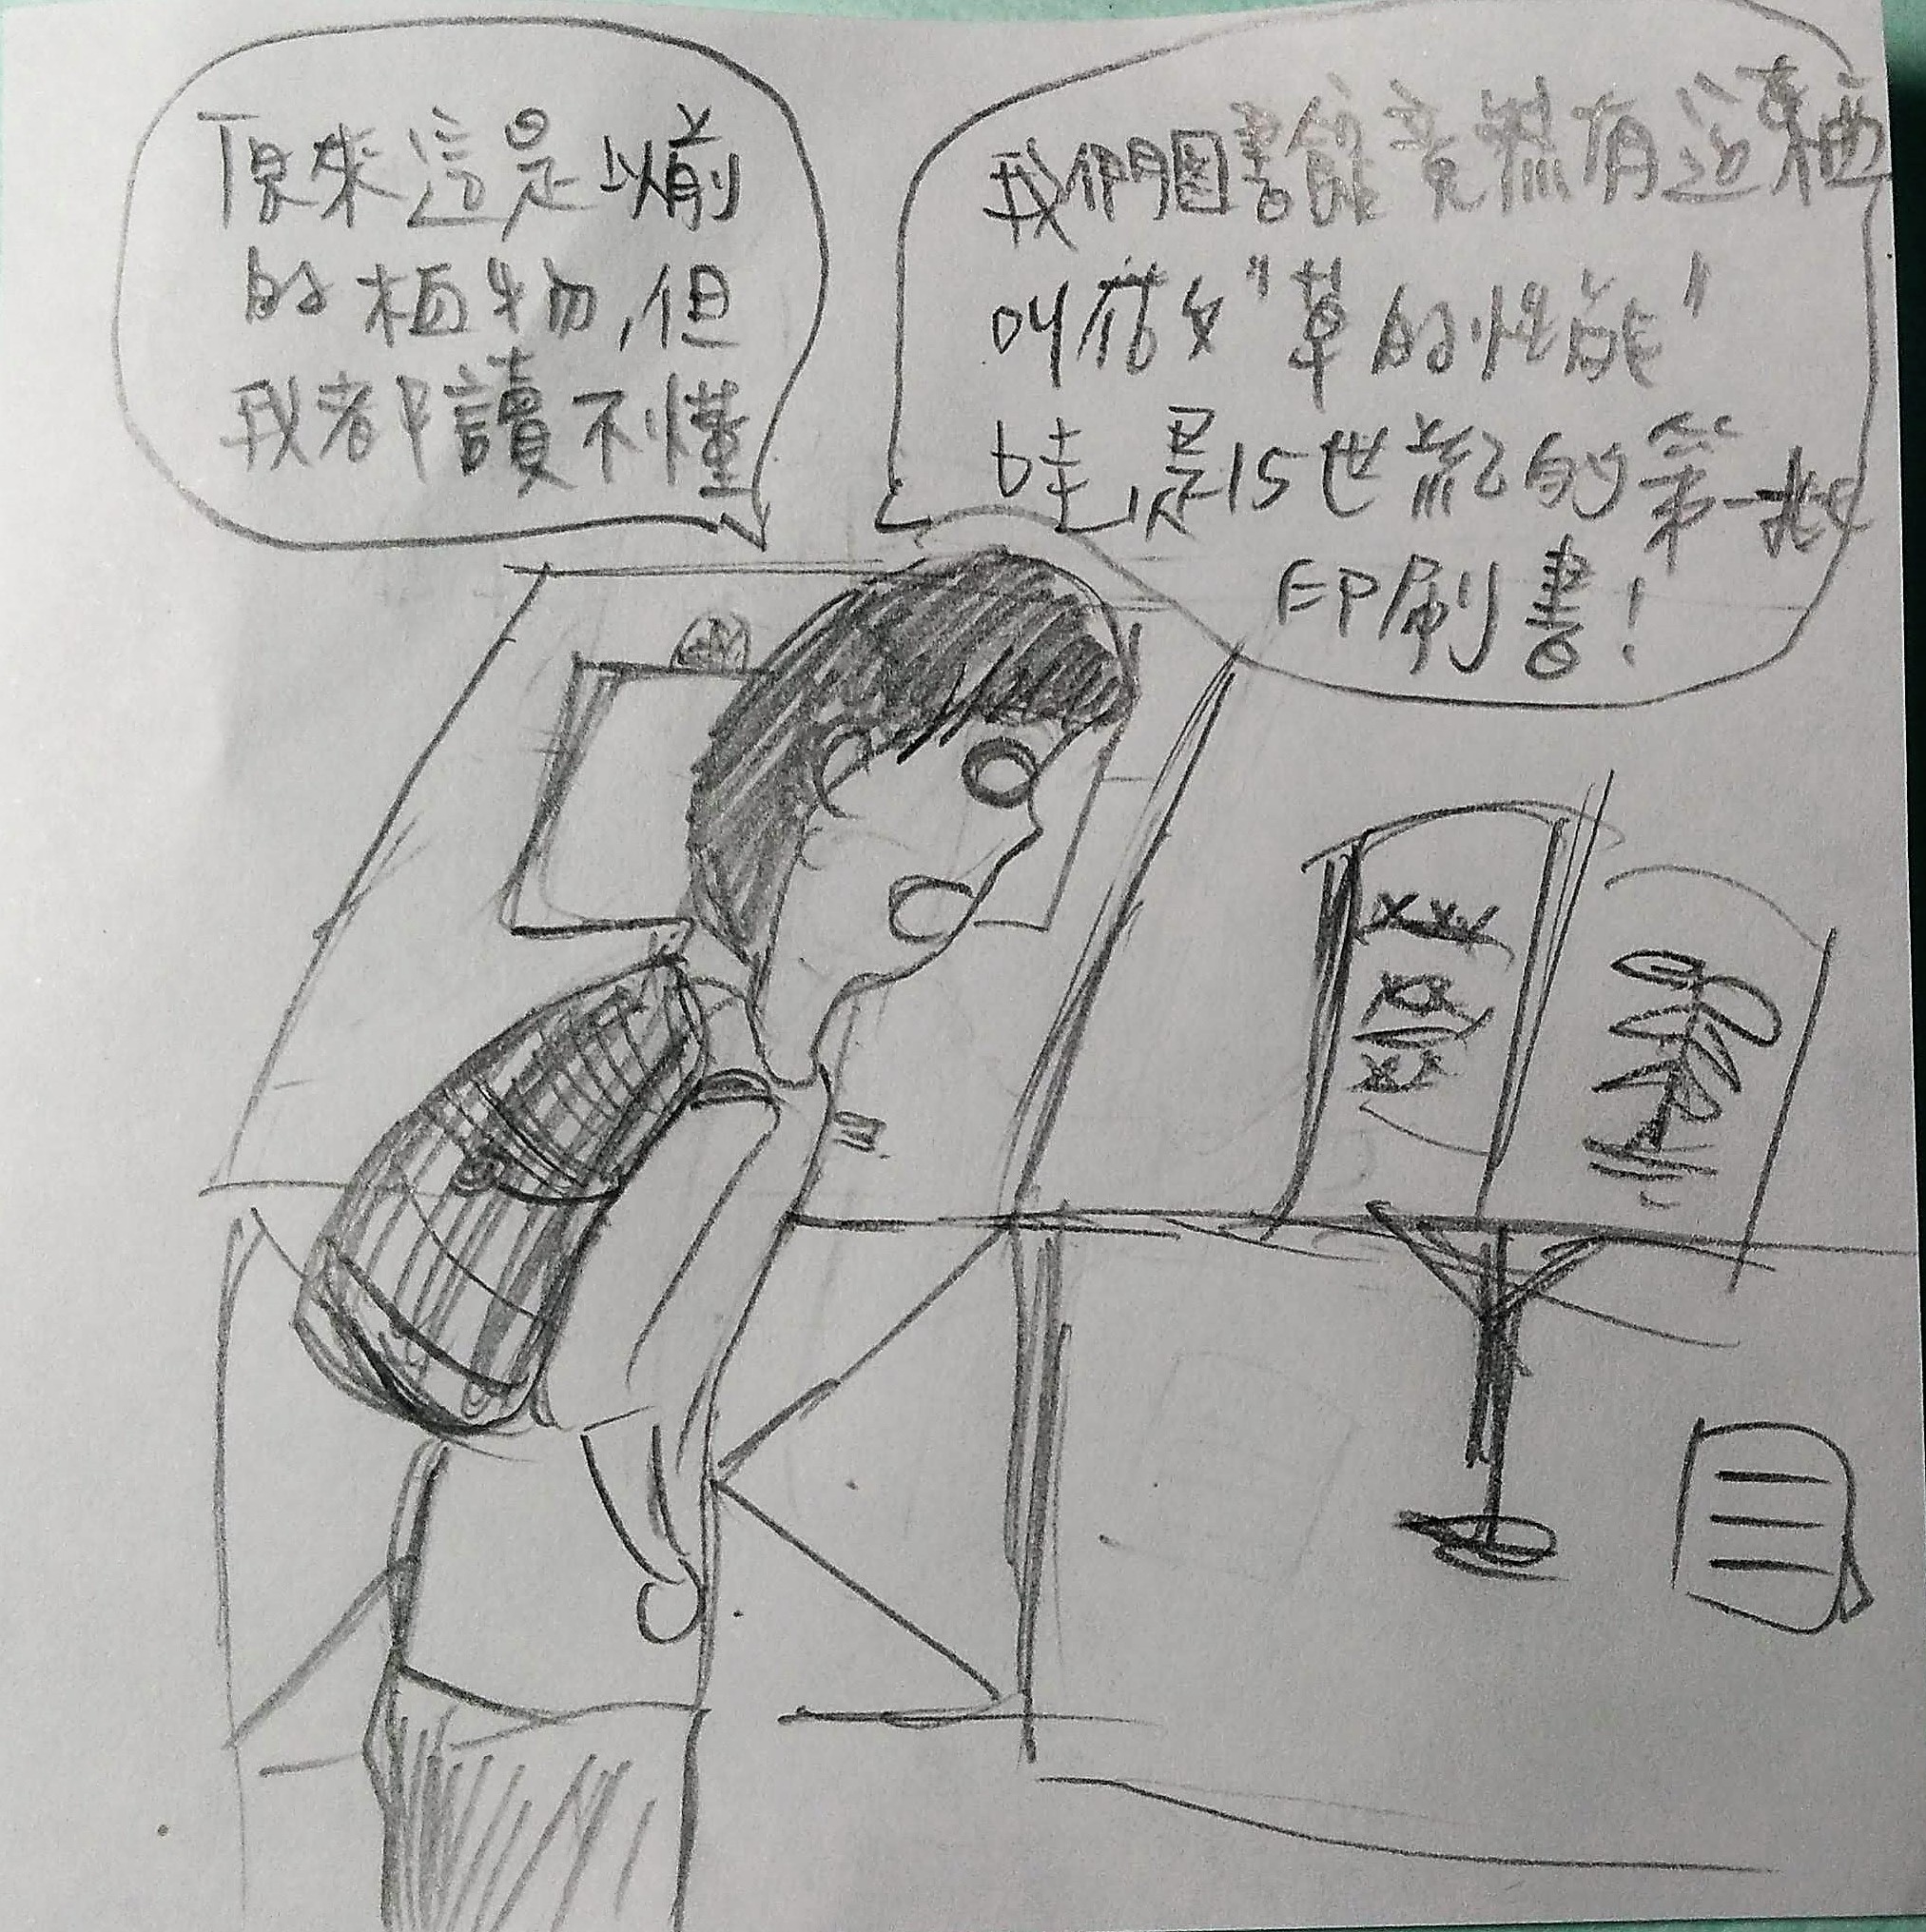 原來這是以前
的植物,但
我都讀不懂
我們圖書館竟然有這東西
叫做"草的性能"
哇,是15世紀的第一批
印刷書!